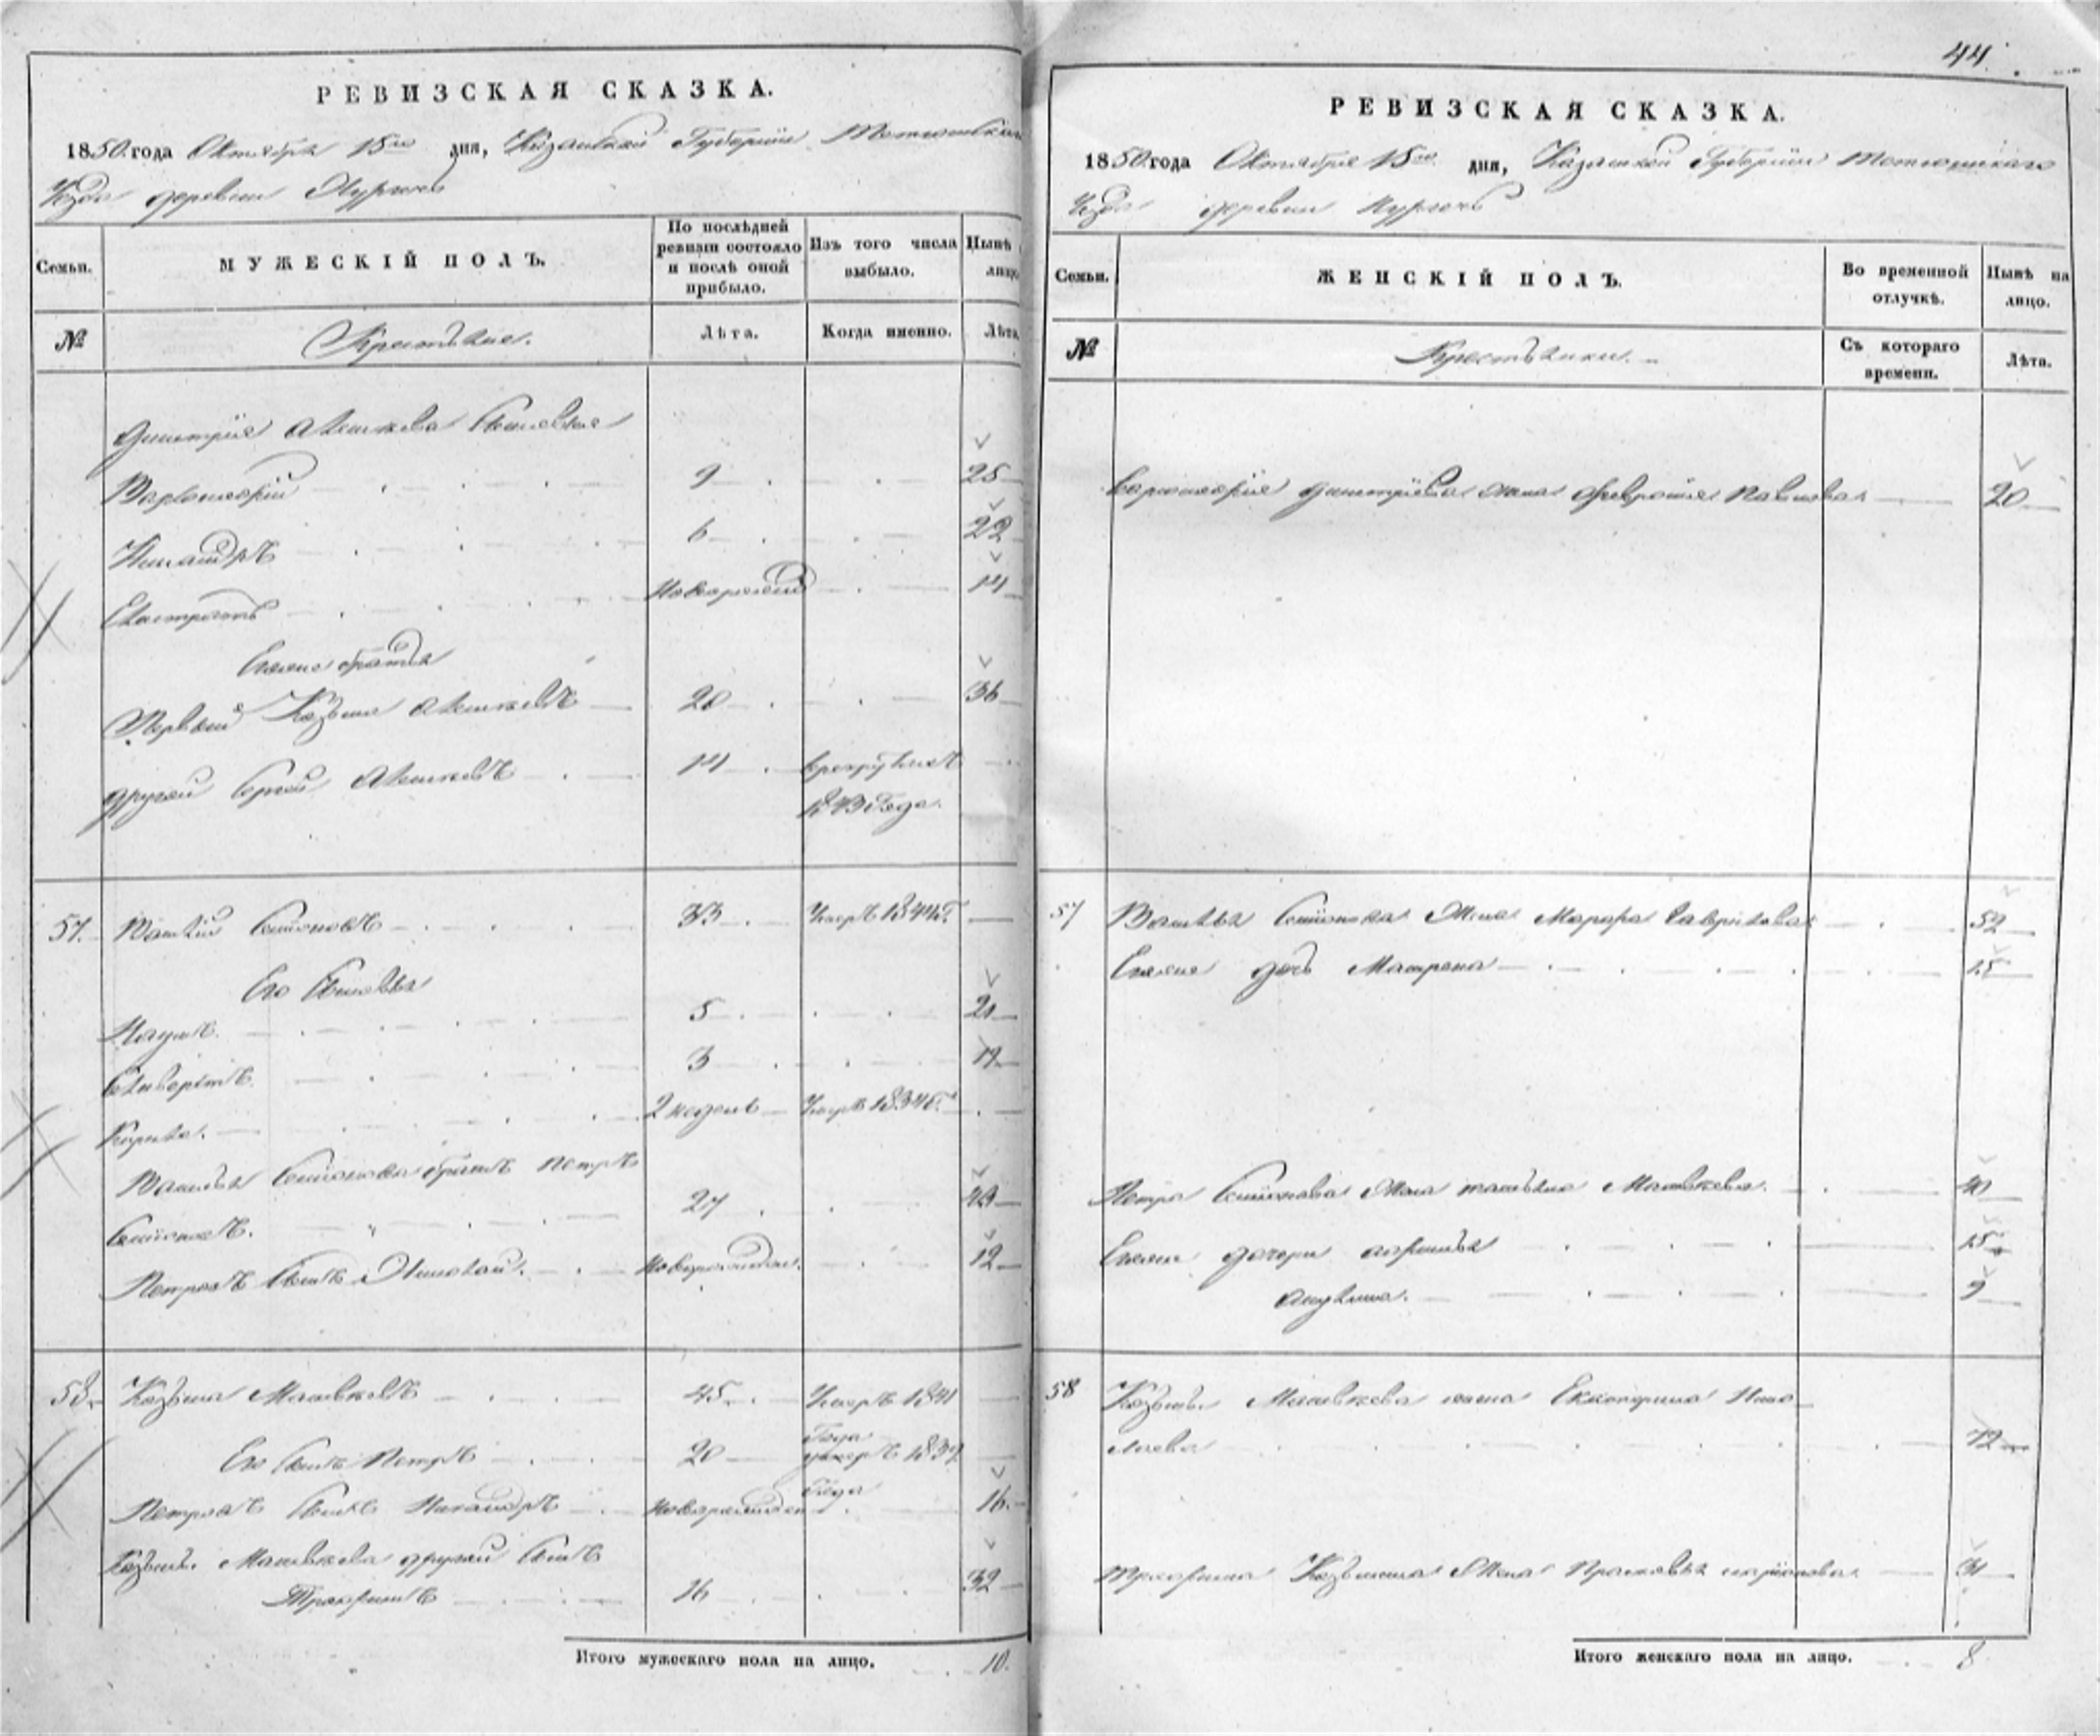 РЕВИЗСКАЯ СКАЗКА.
1850. года Октября 15го дня, Казанской Губернии
Уезда деревни
Семьи.
МУЖЕСКІЙ ПОЛЪ.
По послѣдней ревизіи состояло и послѣ оной прибыло.
Изъ того числа выбыло.
Нынѣ лицо.
№
Крестьяне.
Лѣта.
Когда именно.
Лѣта.
Димитрия Сыновья
9 25
Никандръ 6 22
Евстратъ Новорожден 14
Ево братья
Первый Козьма 20 36
Другой Сергей 14 в рекрутахъ
1843 Года.
57. Василий Семионовъ 33 Умеръ 1844 Г.
Его Сыновья
Наумъ. 5 21
3 19
Кирила. 2 недель Умеръ 1834 Г.
Василья Семионова братъ Петръ
Семионовъ. 27 43
Петровъ Сынъ Николай. Новорожден. 12
58. Козьма Матвеевъ 45 Умеръ 1841
Года
Его Сынъ Петръ 20 умеръ 1837
Года
Петровъ Сынъ Никандръ Новорожден 16.
Козьмы Матвеева другой Сынъ
Трофимъ 16 32
Итого мужескаго пола на лицо. 10.
44.
РЕВИЗСКАЯ СКАЗКА.
1850. года Октября 15го дня, Казанской Губернии
Уезда деревни
Семьи.
ЖЕНСКІЙ ПОЛЪ.
Во временной отлучкѣ.
Нынѣ на лицо.
№
Крестьянки.
Съ котораго времени.
Лѣта.
Димитриева жена Феврония Павлова 20
57 Василья Семионова Жена Марфа Гаврилова 52
Ево дочь Матрена 15
Петра Семионова Жена Татьяна Матвеева. 40
Ево дочери 15
Акулина. 9
58 Козьмы Матвеева жена Екатерина Нико-
лаева 72
Трофима Козьмина Жена Прасковья 31
Итого женскаго пола на лицо. 8